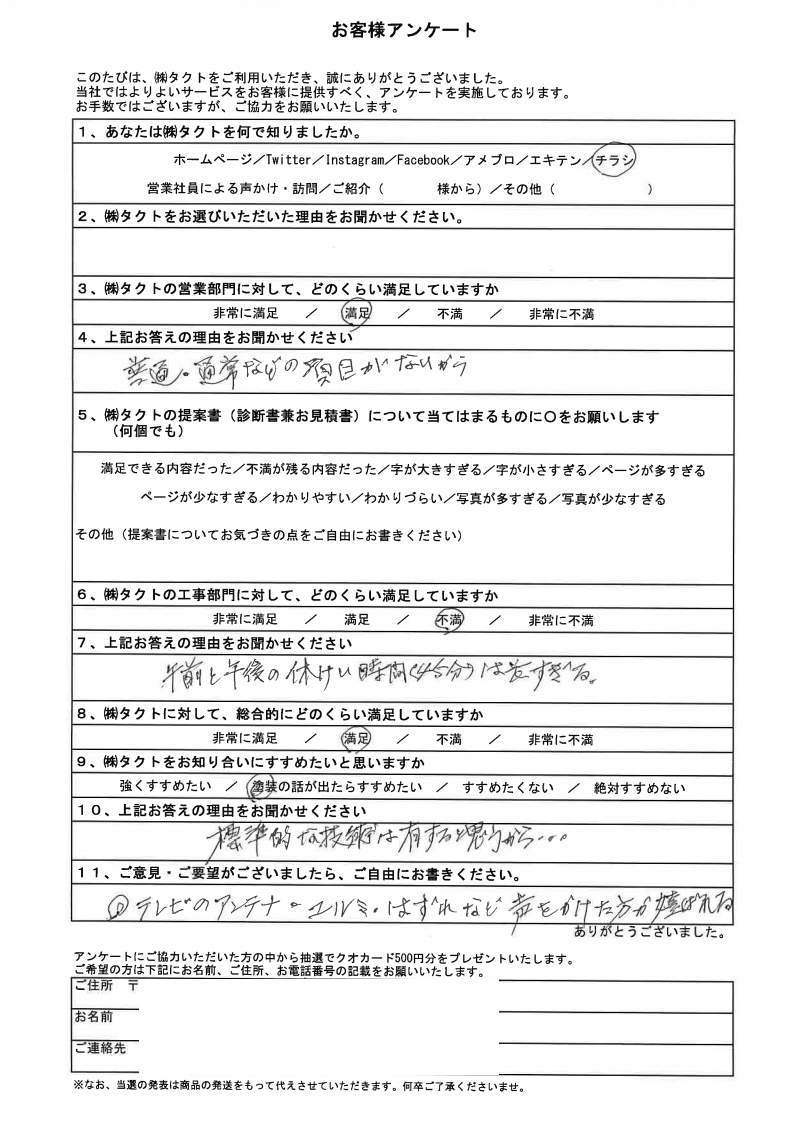 お客様アンケート
このたびは、㈱タクトをご利用いただき、誠にありがとうございました。
当社ではよりよいサービスをお客様に提供すべく、アンケートを実施しております。
お手数ではございますが、ご協力をお願いいたします。
1、あなたは㈱タクトを何で知りましたか。
ホームページ／Twitter／Instagram／Facebook／アメブロ／エキテン／チラシ
営業社員による声かけ・訪問／ご紹介（　　　様から）／その他（　　　　　　）
2、㈱タクトをお選びいただいた理由をお聞かせください。
3、㈱タクトの営業部門に対して、どのくらい満足していますか
非常に満足　／　満足　／　不満　／　非常に不満
4、上記お答えの理由をお聞かせください
普通。通常などの項目がないから
5、㈱タクトの提案書（診断書兼お見積書）について当てはまるものに〇をお願いします
（何個でも）
満足できる内容だった／不満が残る内容だった／字が大きすぎる／字が小さすぎる／ページが多すぎる
ページが少なすぎる／わかりやすい／わかりづらい／写真が多すぎる／写真が少なすぎる
その他（提案書についてお気づきの点をご自由にお書きください）
6、㈱タクトの工事部門に対して、どのくらい満足していますか
非常に満足　／　満足　／　不満　／　非常に不満
7、上記お答えの理由をお聞かせください
午前と午後の休けい時間(45分)は長すぎる。
8、㈱タクトに対して、総合的にどのくらい満足していますか
非常に満足　／　満足　／　不満　／　非常に不満
9、㈱タクトをお知り合いにすすめたいと思いますか
強くすすめたい　／　塗装の話が出たらすすめたい　／　すすめたくない　／　絶対すすめない
10、上記お答えの理由をお聞かせください
標準的な技術は有すると思うから…
11、ご意見・ご要望がございましたら、ご自由にお書きください。
テレビのアンテナ はずれなど 声をかけた方が 喜ばれる
ありがとうございました。
アンケートにご協力いただいた方の中から抽選でクオカード500円分をプレゼントいたします。
ご希望の方は下記にお名前、ご住所、お電話番号の記載をお願いいたします。
ご住所　〒
お名前
ご連絡先
※なお、当選の発表は商品の発送をもって代えさせていただきます。何卒ご了承くださいませ。